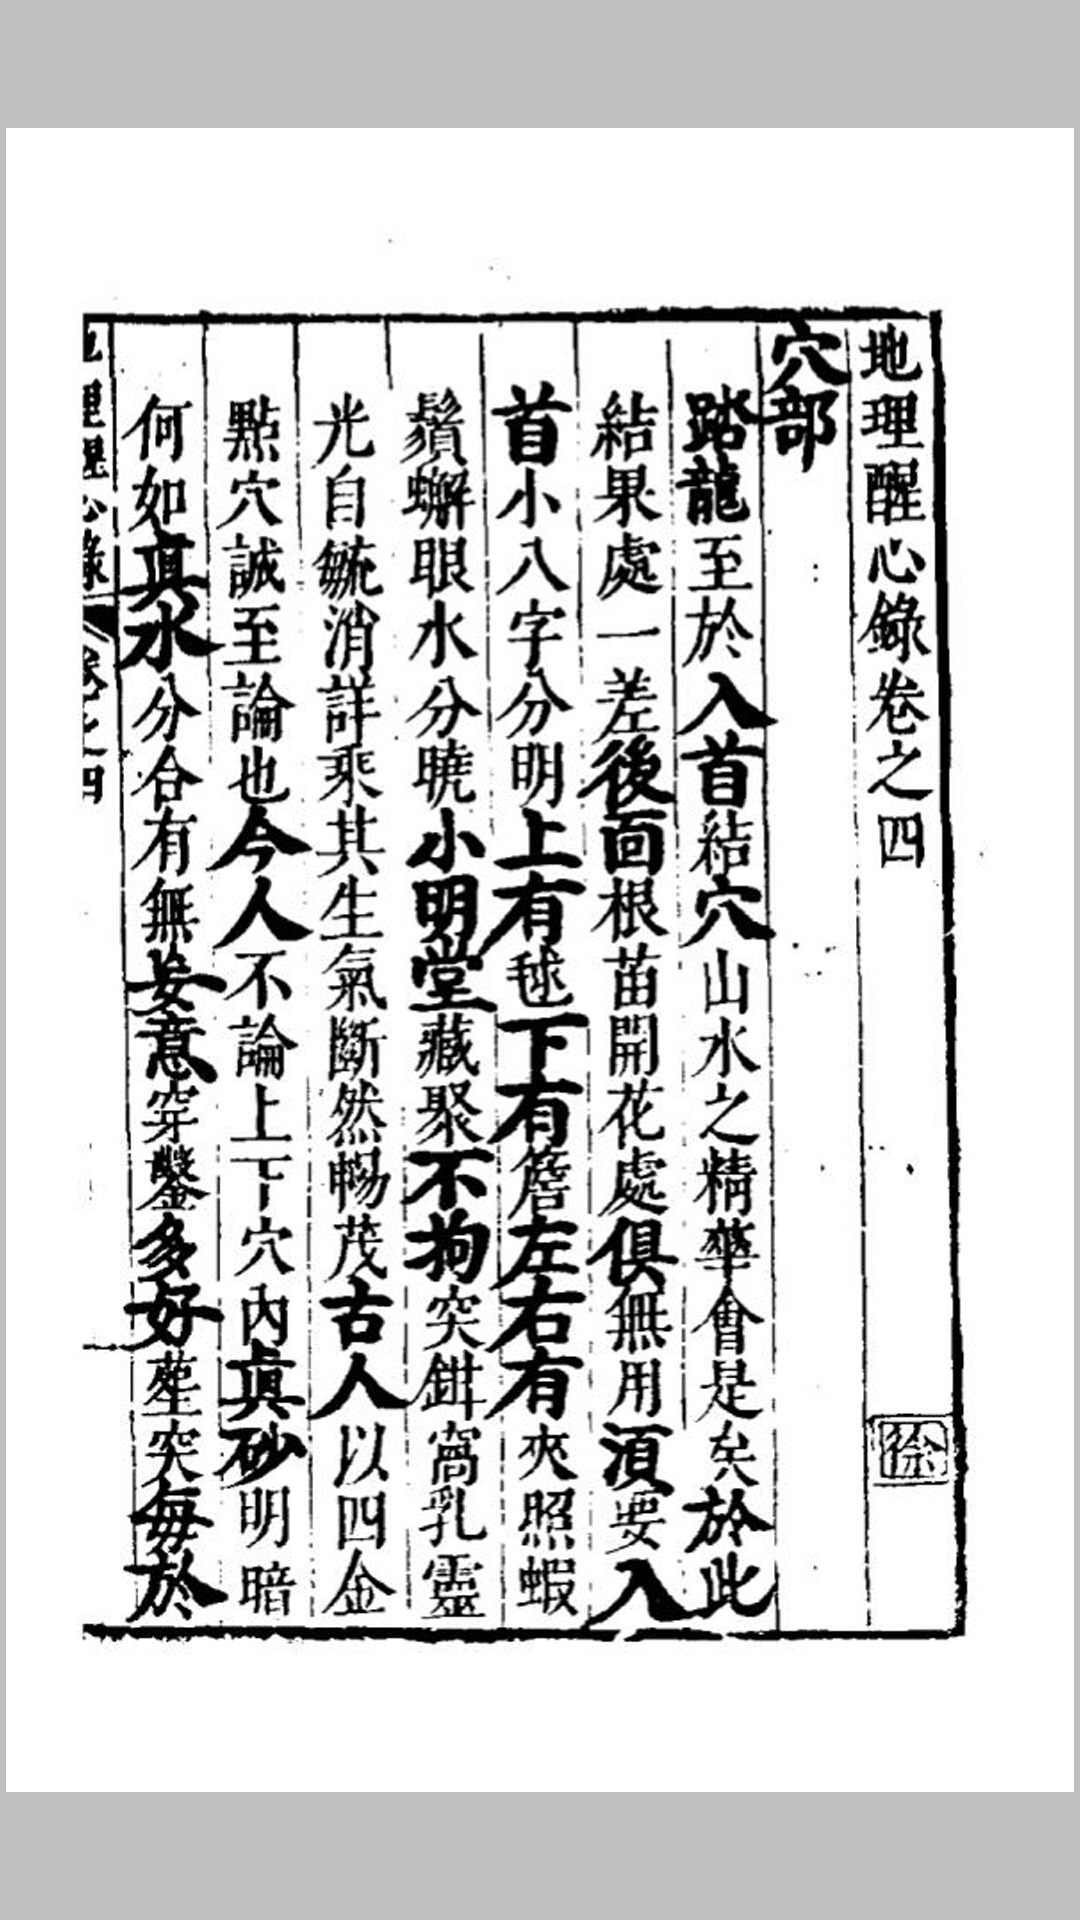 地理醒心錄卷之四
徐
穴部
踏龍至於入首結穴山水之精華會是矣於此
結果處一差後面根苗開花處俱無用須要入
首小八字分明上有毬下有簷左右有夾照蝦
鬚蠏眼水分曉小明堂藏聚不拘突鉗窩乳靈
光自毓消詳乘其生氣斷然暢茂古人以四金
點穴誠至論也今人不論上下穴內真砂明暗
何如真水分合有無妄意穿鑿多好塟突每於
地理醒心錄 卷之四